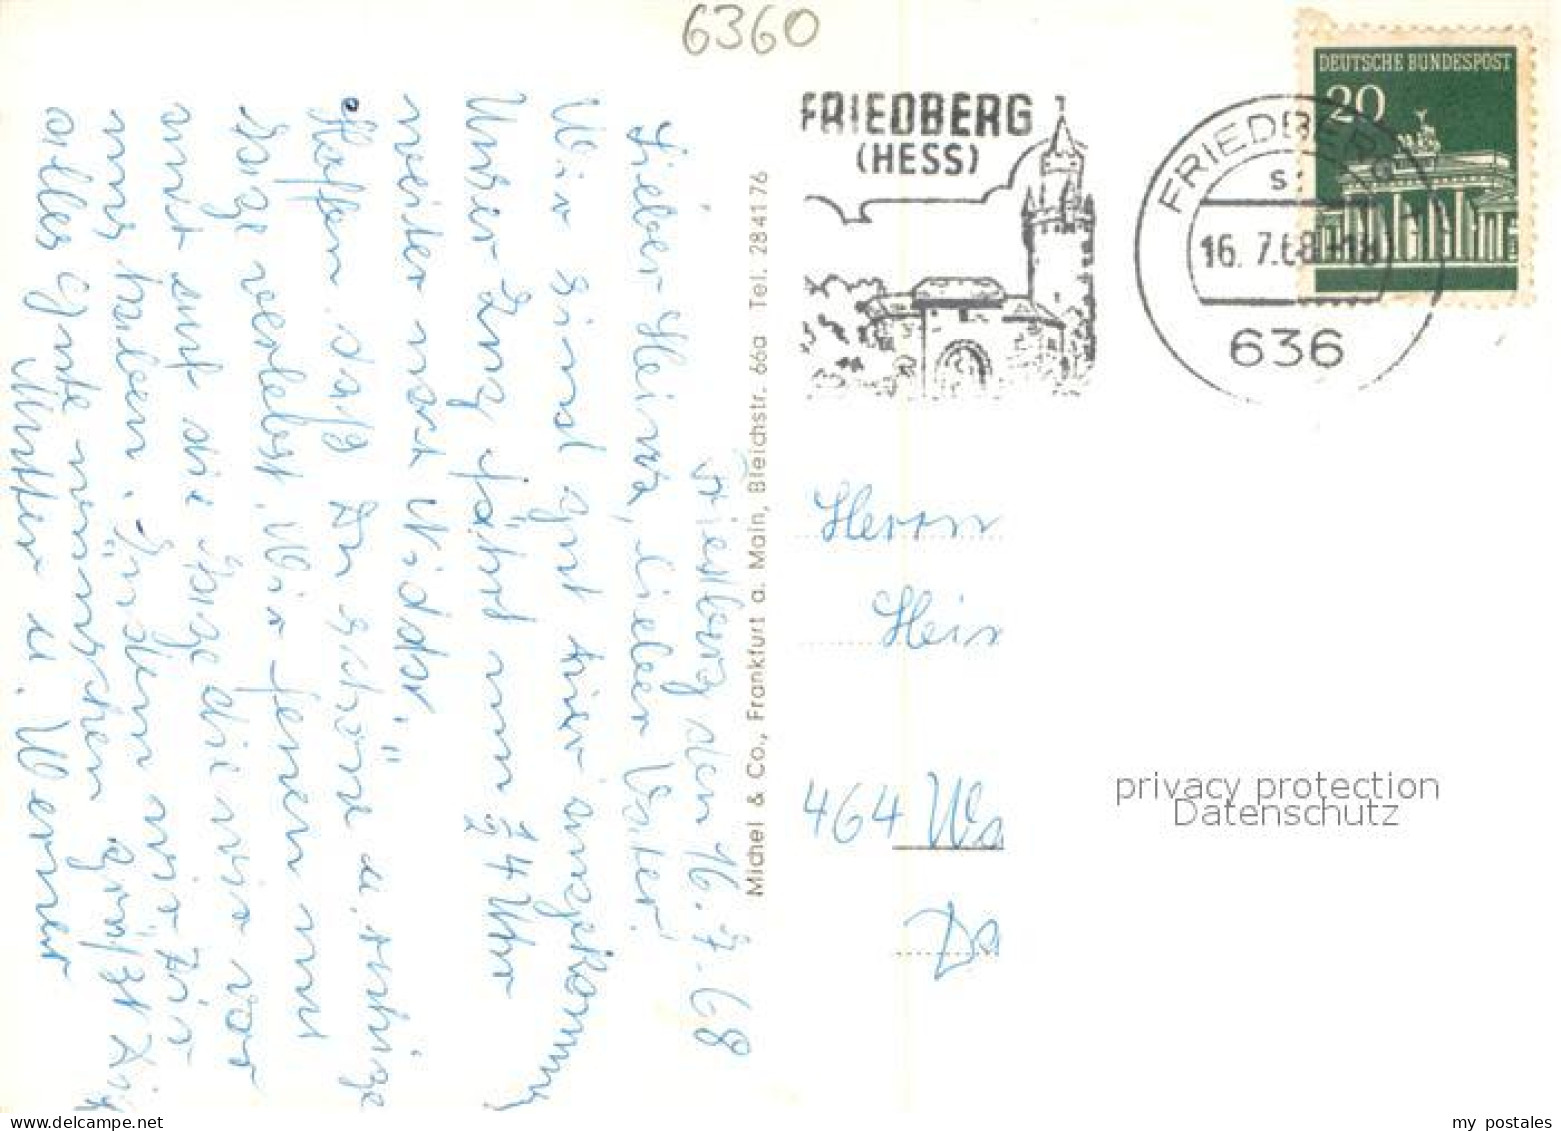 6360
DEUTSCHE BUNDESPOST
20
FRIEDBERG
(HESS)
FRIEDBERG
16.7.68-18
636
Friedberg den 16.7.68
Lieber Heinz, lieber Vater!
Wir sind gut hier angekommen,
Unser Zug fährt um ½ 14 Uhr
weiter nach Nidda,
Hoffen daß Du schöne u. ruhige
Tage verlebst. Wir freuen uns
auf die Tage die wir vor
uns haben.
alles Gute wünschen grüßt Dich
Mutter u. Werner
Michel & Co., Frankfurt a. Main, Bleichstr. 66a Tel. 284176
Herrn
Hein
464 Wa
Da
privacy protection
Datenschutz
my postales